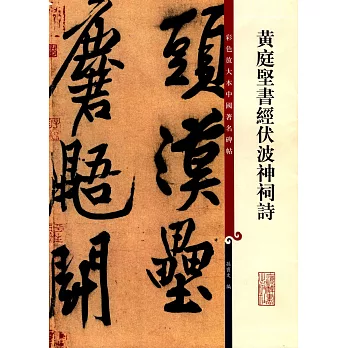 黃庭堅書經伏波神祠詩
彩色放大本中國著名碑帖
孫寶文 編
頭漢壘
麏鼯閒